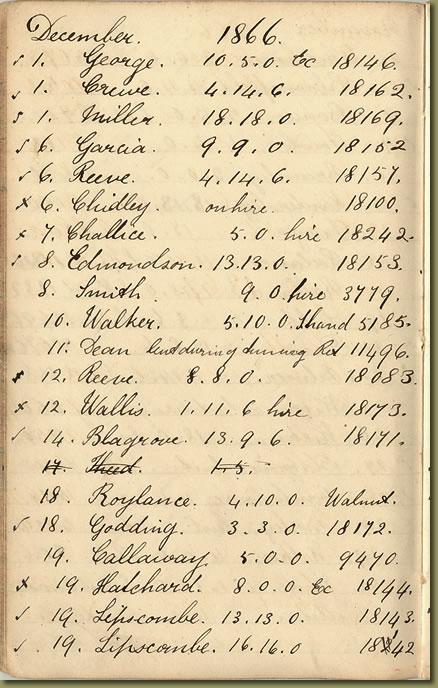 December. 1866.
s 1. George. 10.5.0. Ec 18146.
s 1. Crewe. 4.14.6. 18162.
s 1. Miller. 18.18.0. 18169.
s 6. Garcia. 9.9.0. 18152
s 6. Reeve. 4.14.6. 18157.
x 6. Chidley. on hire. 18100.
x 7. Challice. 5.0. hire 18242.
s 8. Edmondson. 13.13.0. 18153.
8. Smith 9.0. hire 3779.
10. Walker. 5.10.0. 2hand 5185.
11. Dean lent during tuning Ret 11496.
12. Reeve. 8.8.0. 18083.
x 12. Wallis. 1.11.6 hire 18173.
s 14. Blagrove. 13.9.6. 18171.
17. 1.5.
18. Roylance. 4.10.0. Walnut.
s 18. Godding. 3.3.0. 18172.
19. Callaway 5.0.0 9470.
x 19. Hatchard. 8.0.0. Ec 18144.
s 19. Lipscombe. 13.13.0. 18143.
s 19. Lipscombe. 16.16.0